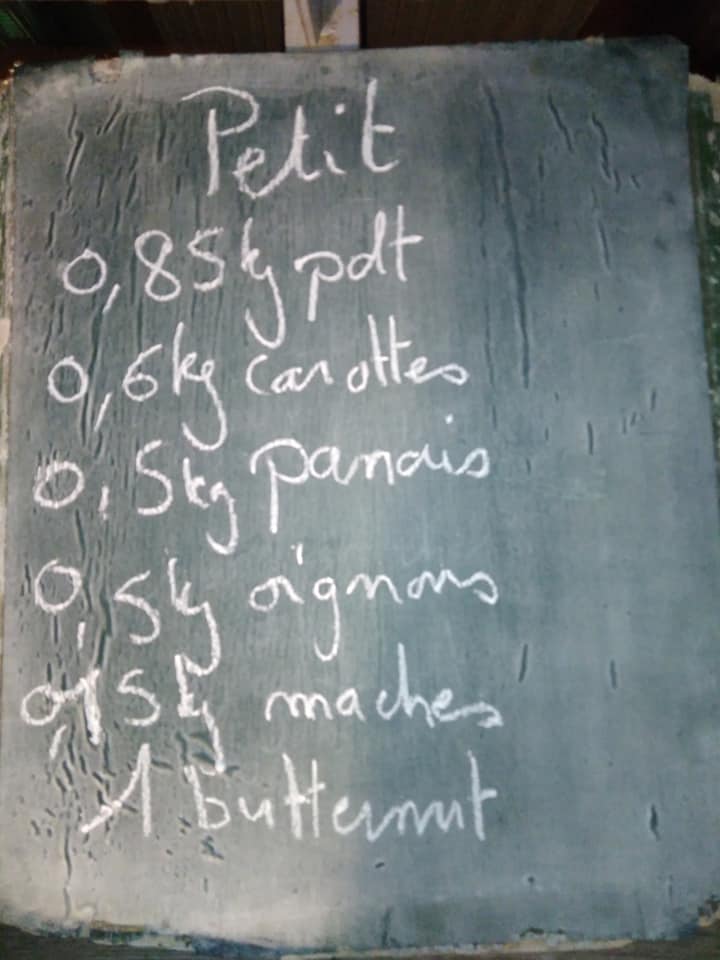 Petit
0,85kg pdt
0,6kg carottes
0,5kg panais
0,5kg oignons
0,15kg maches
1 butternut